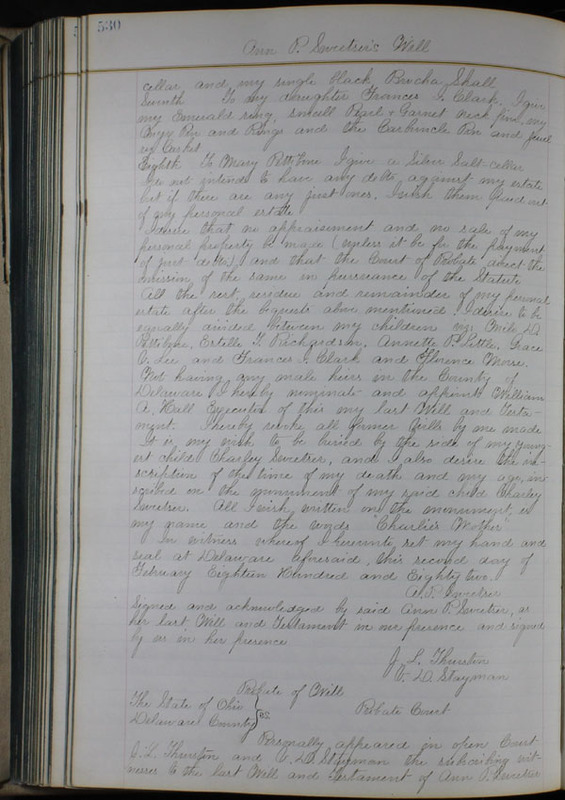 530
Ann P. Sweetser's Will
cellar and my single black Brocha Shall.
Seventh To my daughter Frances I. Clark, I give
my Emerald ring, small Pearl & Garnet neck pin, my
Onyx Pin and Rings and the Carbuncle Pin and Jewel
ry Casket
Eighth To Mary Pettibone I give a Silver Salt-cellar
I do not intend to have any debts against my estate
but if there are any just ones, I wish them paid out
of my personal estate
I desire that no appraisement and no sale of my
personal property be made (unless it be for the payment
of just debts), and that the Court of Probate direct the
omission of the same in pursuance of the Statute
All the rest, residue and remainder of my personal
estate after the bequests above mentioned I desire to be
equally divided between my children viz: D.
Pettibone, Estelle T. Richardson, Annette P. Little, Grace
V. Lee and Frances I. Clark and Florence Morse.
Not having any male heirs in the County of
Delaware I hereby nominate and appoint William
A. Hall Executor of this my last Will and Testa-
ment. I hereby revoke all former Wills by me made
It is my wish to be buried by the side of my young-
est child Charley Sweetser, and I also desire the in-
scription of the time of my death and my age, in-
scribed on the monument of my said child Charley
Sweetser. All I wish written on the monument, is
my name and the words "Charlie's Mother"
In witness whereof I hereunto set my hand and
seal at Delaware aforesaid, this second day of
February Eighteen Hundred and Eighty two.
A. P. Sweetser
Signed and acknowledged by said Ann P. Sweetser, as
her last Will and Testament in our presence and signed
by us in her presence
J. L. Thurston
C. D. Stayman
Probate of Will
The State of Ohio
Delaware County } ss. Probate Court
Personally appeared in open Court
J. L. Thurston and C. D. Stayman the subscribing wit-
nesses to the last Will and Testament of Ann P. Sweetser